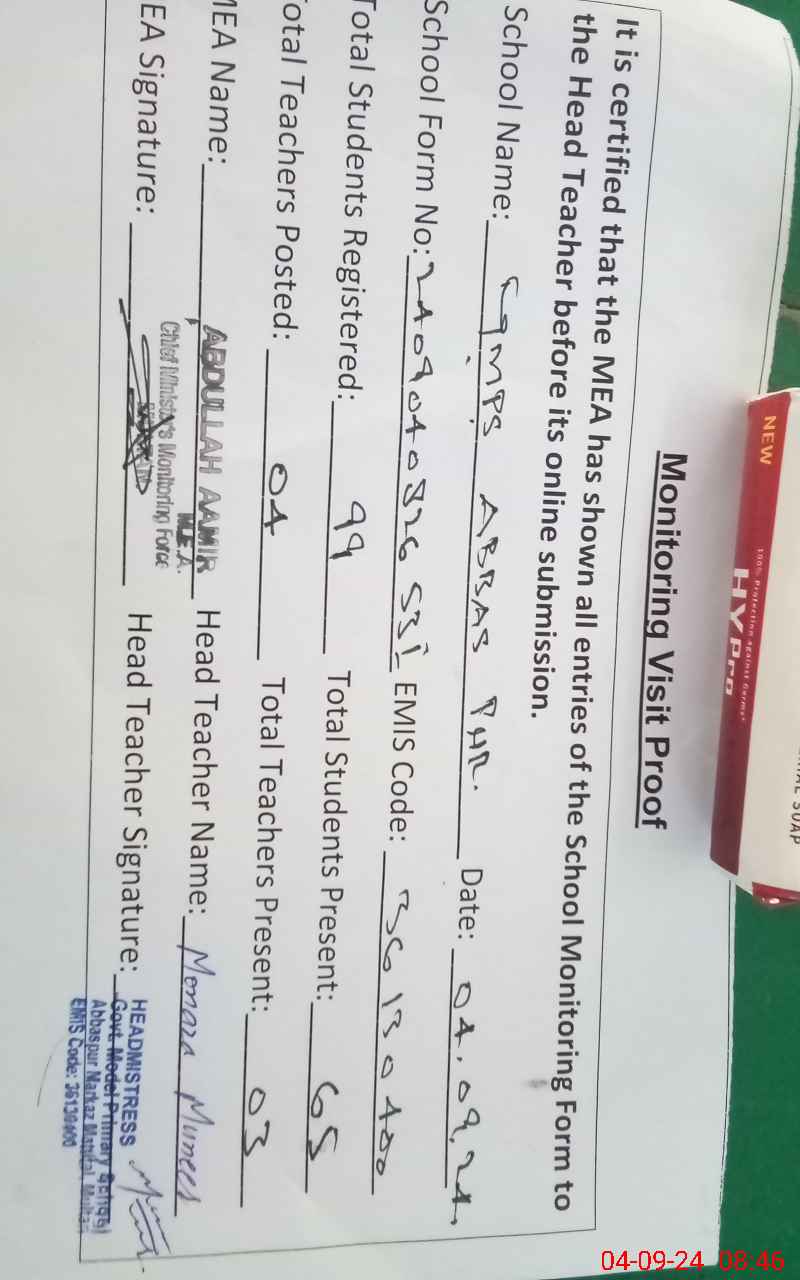 NEW
100% Protection against Germs*
HYPro
SOAP
Monitoring Visit Proof
It is certified that the MEA has shown all entries of the School Monitoring Form to
the Head Teacher before its online submission.
School Name: GMPS ABBAS PUR. Date: 04.09.24.
School Form No: EMIS Code: 36130400
Total Students Registered: 99 Total Students Present: 65
Total Teachers Posted: 04 Total Teachers Present: 03
MEA Name: ABDULLAH AAMIR Head Teacher Name: Monaza Munees
M.E.A.
Chief Minister's Monitoring Force
EA Signature: Head Teacher Signature:
HEADMISTRESS
Govt. Model Primary School
Abbaspur Markaz Matital, Multan
EMIS Code: 36130400
04-09-24 08:46